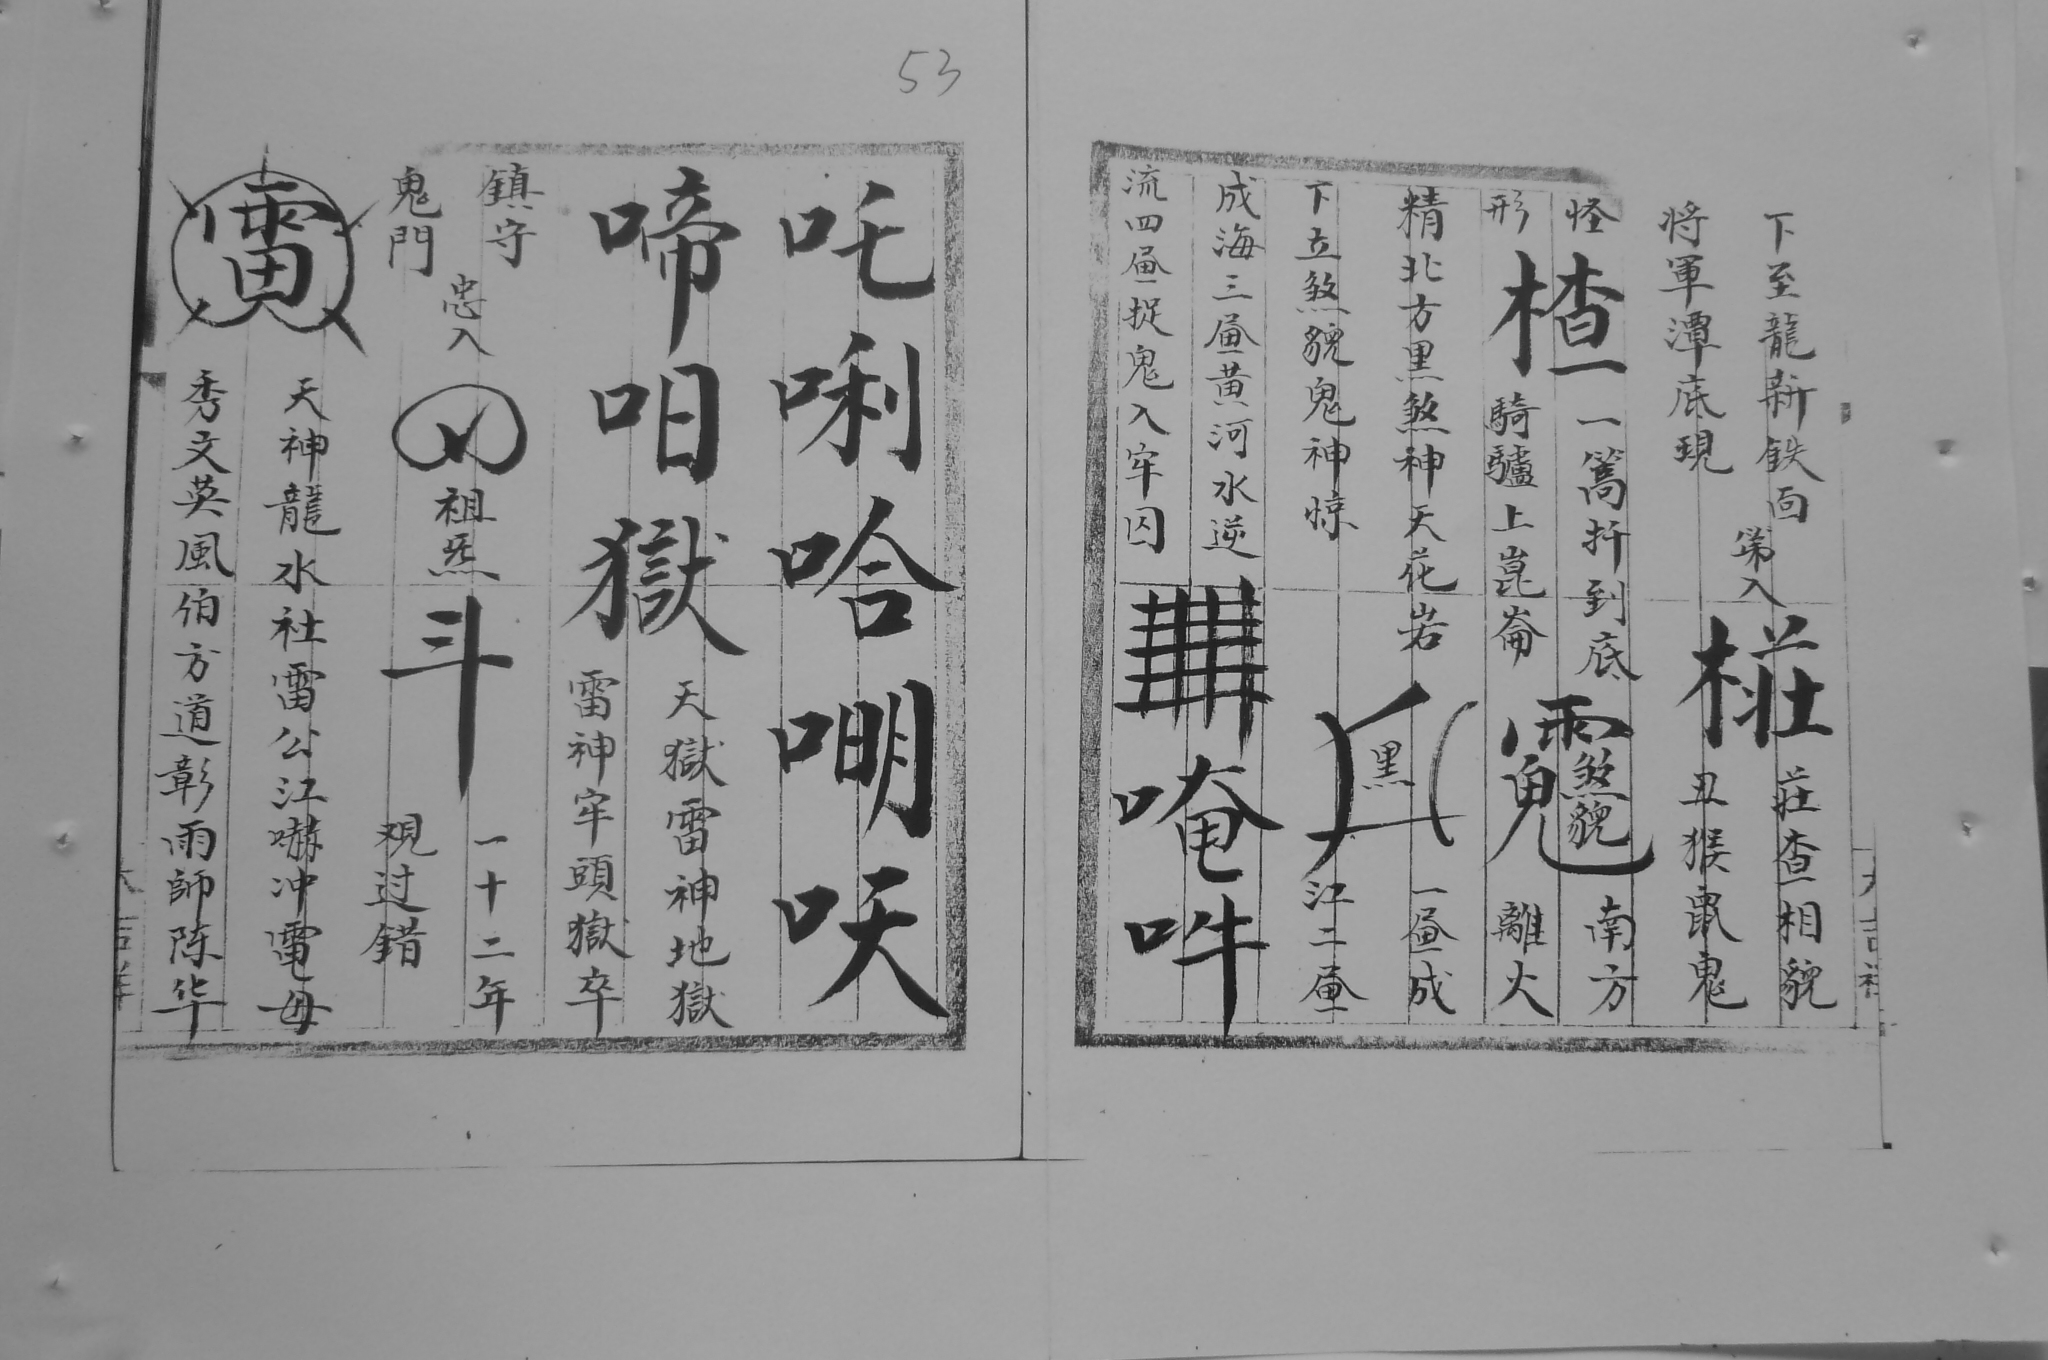 53
下至龍新鉄面
将軍潭底現
第入
莊查相貌
丑猴鼠鬼
怪
形
楂
一篙扦到底
騎驢上崑崙
南方
離火
煞貌
精北方黑煞神天花岩
下立煞貌鬼神惊
黑
一畫成
江二畫
成海三畫黄河水逆
流四畫捉鬼入牢囚
唵吽
吒唎哈嘣㕭
啼呾獄
天獄雷神地獄
雷神牢頭獄卒
鎮守
鬼門
忠入
祖炁
斗
一十二年
观过錯
雷
天神龍水社雷公江嚇冲電母
秀文英風伯方道彰雨師陈华